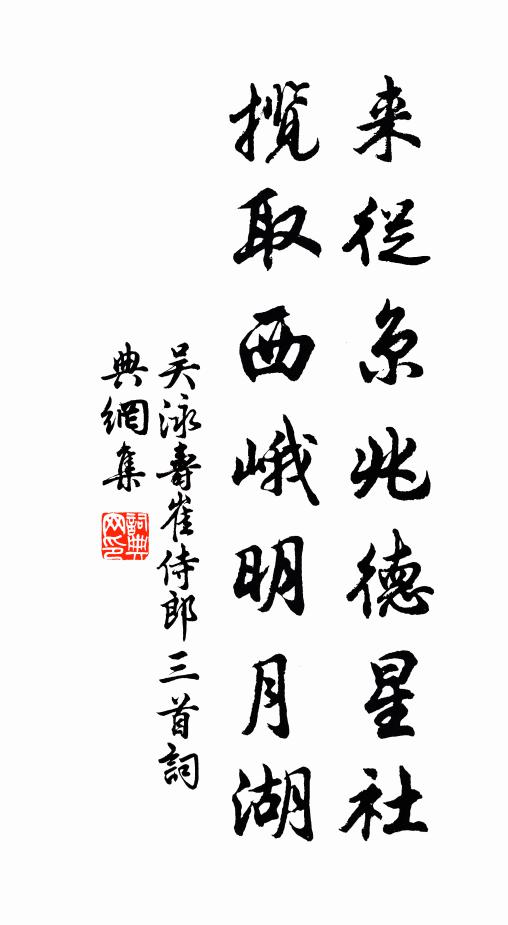 来從京兆德星社
攬取西峨明月湖
吴泳壽崔侍郎三首詞
典網集
詞典
网印